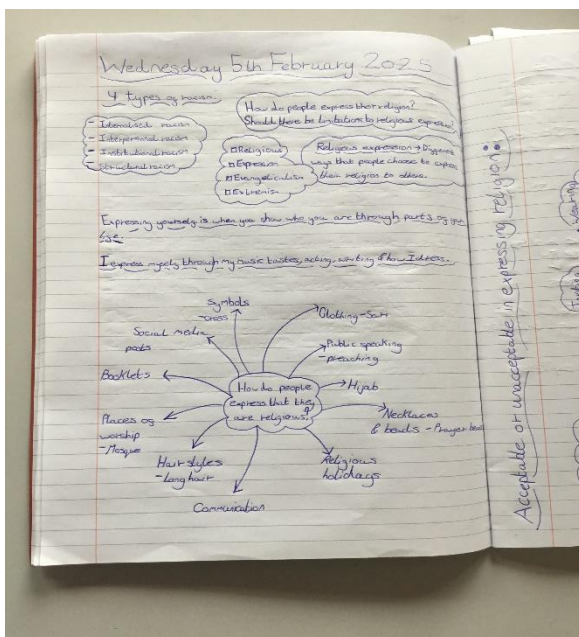 Wednesday 5th February 2025
4 types of racism.
- Internalised racism
- Interpersonal racism
- Institutional racism
- Structural racism
How do people express their religion?
Should there be limitations to religious expression?
Religious
Expression
Evangelicalism
Extremism
Religious expression → Different
ways that people choose to express
their religion to others.
Expressing yourself is when you show who you are through parts of your
life.
I express myself through my music tastes, acting, writing & how I dress.
How do people
express that they
are religious?
Symbols
- cross
Clothing - Sari
Public speaking
- preaching
Hijab
Necklaces
& beads - Prayer
Religious
holidays
Communication
Hairstyles
- Long hair
Places of
worship
- Mosque
Booklets
Social media
posts
Acceptable or unacceptable in expressing religion: